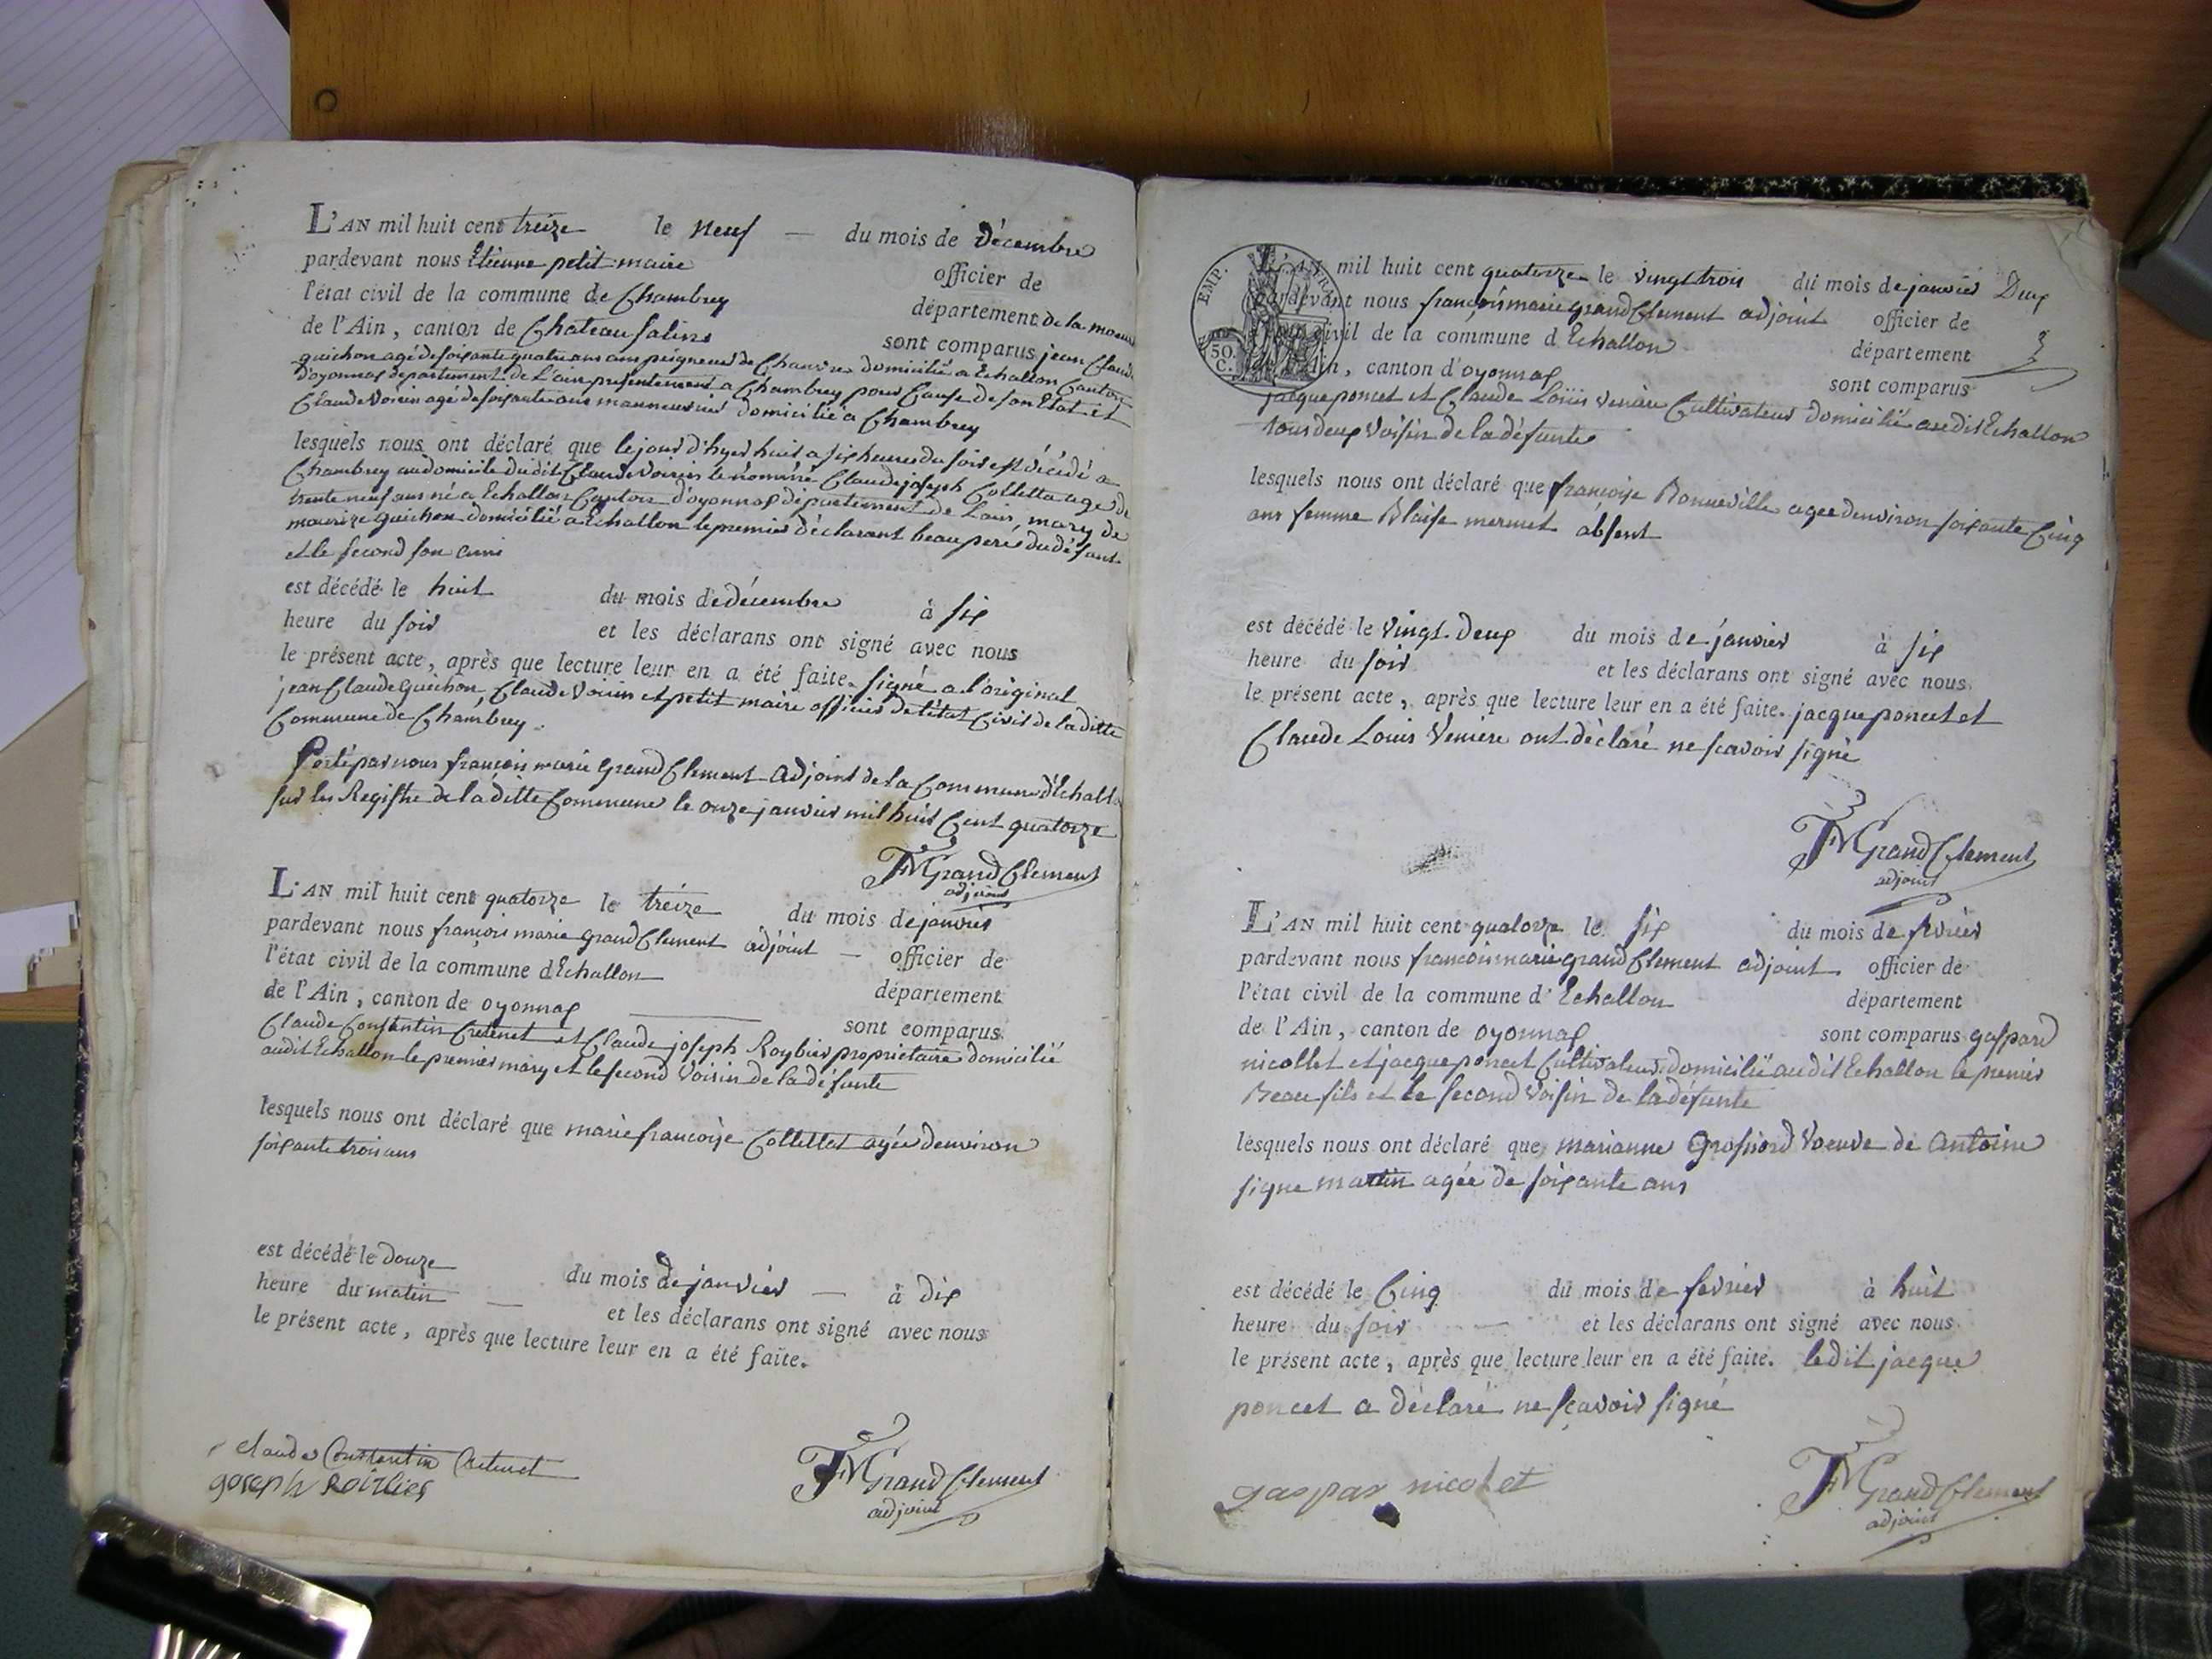 L'AN mil huit cent treize le neuf — du mois de Décembre
pardevant nous Etienne petit maire officier de
l'état civil de la commune de Chambrey département de la meur
de l'Ain, canton de Chateau salins sont comparus jean Claude
guichon agé de soixante quatre ans ampeigneur de Chanvre domicilié a Echallon Canton
d'oyonnax departement de L'ain presentement a Chambrey pour Cause de son Etat et
Claude Voirin agé de soixante ans manneuvrier domicilié a Chambrey
lesquels nous ont déclaré que le jour d'hyer huit a six heures du soir est décédé a
Chambrey au domicile dudit Claude Voirin le nommé Claude joseph Colletta age de
trente neuf ans né a Echallon Canton d'oyonnax département de Lain, mary de
maurize guichon domicilié a Echallon le premier déclarant beau pere du défunt
et le second son ami
est décédé le huit du mois de décembre à six
heure du soir et les déclarans ont signé avec nous
le présent acte, après que lecture leur en a été faite. signé a l'original
jean Claude Guichon, Claude Voirin et petit maire officier de l'état Civil de la ditte
Commune de Chambrey.
Porté par nous françois marie Grand Clement adjoint de la Commune d'Echallo
sur les Registre de la ditte Commune le onze janvier mil huit Cent quatorze
FM Grand Clement
adjoint
L'AN mil huit cent quatorze le treize du mois de janvier
pardevant nous françois marie Grand Clement adjoint — officier de
l'état civil de la commune d'Echallon département
de l'Ain, canton de oyonnax sont comparus
Claude Constantin Cretenet et Claude joseph Roybier proprietaire domicilié
audit Echallon le premier mary et le second Voisin de la défunte
lesquels nous ont déclaré que marie francoise Collettet agée denviron
soixante trois ans
est décédé le douze du mois de janvier — à dix
heure du matin — et les déclarans ont signé avec nous
le présent acte, après que lecture leur en a été faite.
claude Constantin Cretenet
joseph Roirbier
FM Grand Clement
adjoint
EMP. FRAN
50.
C.
L'AN mil huit cent quatorze le vingt trois du mois de janvier Deux
pardevant nous françois marie grand Clement adjoint officier de
l'état civil de la commune d'Echallon département
de l'Ain, canton d'oyonnax sont comparus
jacque poncet et Claude Louis veniere Cultivateur domicilié audit Echallon
tous deux Voisin de la défunte
lesquels nous ont déclaré que françoise Bonneville agee denviron soixante Cinq
ans femme Blaise mermet absent
est décédé le vingt Deux du mois de janvier à six
heure du soir et les déclarans ont signé avec nous
le présent acte, après que lecture leur en a été faite. jacque poncet et
Claude Louis Veniere ont déclaré ne scavoir signé
FM Grand Clement
adjoint
L'AN mil huit cent quatorze le six du mois de fevrier
pardevant nous francois marie grand Clement adjoint officier de
l'état civil de la commune d'Echallon département
de l'Ain, canton de oyonnax sont comparus gaspard
nicollet et jacque poncet Cultivateur domicilié audit Echallon le premier
Beau fils et le second Voisin de la défunte
lesquels nous ont déclaré que marianne Grosfiord Voeuve de Antoine
signe martin agée de soixante ans
est décédé le Cinq du mois de fevrier à huit
heure du soir — et les déclarans ont signé avec nous
le présent acte, après que lecture leur en a été faite. ledit jacque
poncet a déclaré ne sçavoir signé
gaspar nicolet
FM Grand Clement
adjoint